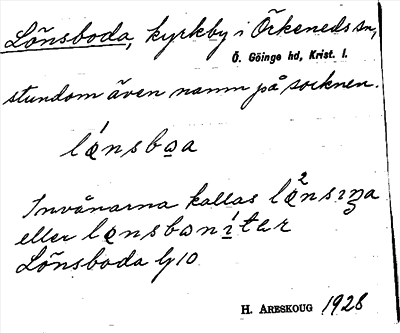 Lönsboda, kyrkby i Örkeneds sn,
Ö. Göinge hd, Krist. l.
stundom även namn på socknen.
lǿnsbo̲a
Invånarna kallas lø²nsɪŋa
eller lønsbonítar
Lönsboda Gg 10
H. ARESKOUG 1928